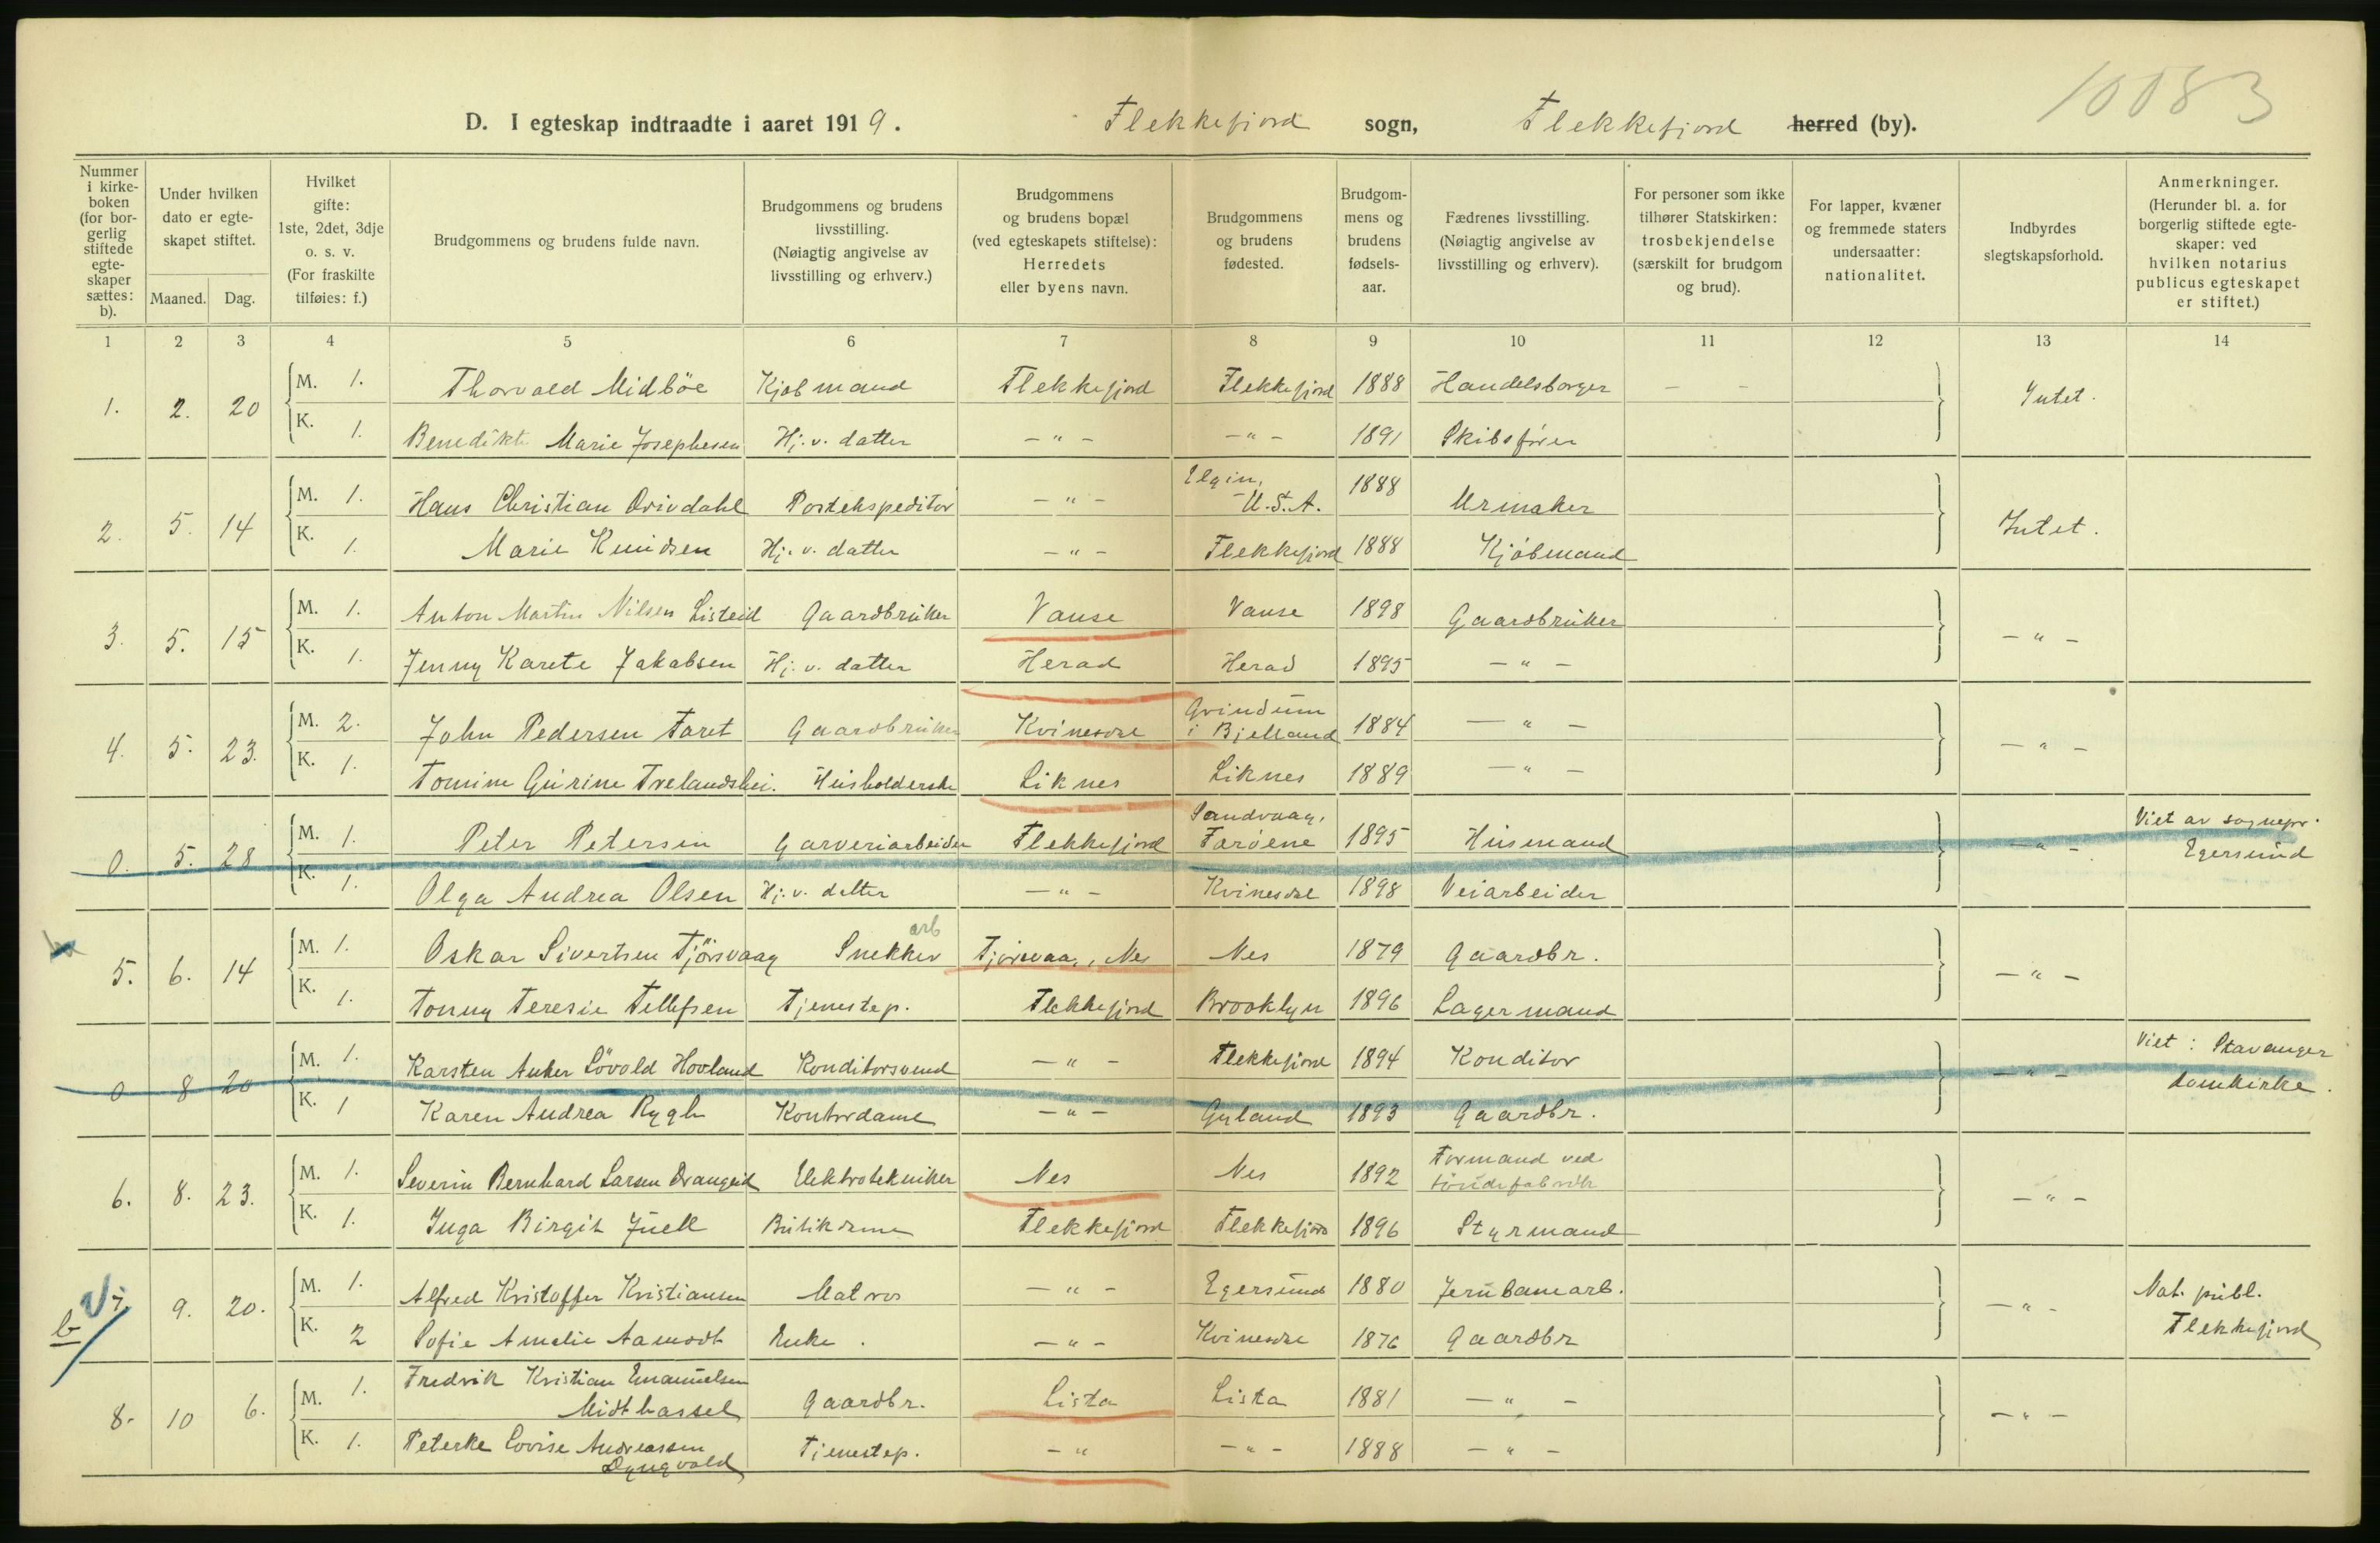 10083
D. I egteskap indtraadte i aaret 1919. Flekkefjord sogn, Flekkefjord herred (by).
Nummer i kirke-boken (for bor-gerlig stiftede egte-skaper sættes: b).
Under hvilken dato er egte-skapet stiftet.
Maaned. Dag.
Hvilket gifte: 1ste, 2det, 3dje o. s. v. (For fraskilte tilføies: f.)
Brudgommens og brudens fulde navn.
Brudgommens og brudens livsstilling. (Nøiagtig angivelse av livsstilling og erhverv.)
Brudgommens og brudens bopæl (ved egteskapets stiftelse): Herredets eller byens navn.
Brudgommens og brudens fødested.
Brudgom-mens og brudens fødsels-aar.
Fædrenes livsstilling. (Nøiagtig angivelse av livsstilling og erhverv).
For personer som ikke tilhører Statskirken: trosbekjendelse (særskilt for brudgom og brud).
For lapper, kvæner og fremmede staters undersaatter: nationalitet.
Indbyrdes slegtskapsforhold.
Anmerkninger. (Herunder bl. a. for borgerlig stiftede egte-skaper: ved hvilken notarius publicus egteskapet er stiftet.)
1 2 3 4 5 6 7 8 9 10 11 12 13 14
1. 2. 20 M. 1. Thorvald Midböe Kjøbmand Flekkefjord Flekkefjord 1888 Handelsborger - - Intet.
K. 1. Benedikte Marie Josephesen Hj. v. datter - " - - " - 1891 Skibsfører
2. 5. 14 M. 1. Hans Christian Drivdahl Postekspeditør - " - Elgin, U.S.A. 1888 Urmaker Intet.
K. 1. Marie Knudsen Hj. v. datter - " - Flekkefjord 1888 Kjøbmand
3. 5. 15 M. 1. Anton Martin Nilsen Listeid Gaardbruker Vanse Vanse 1898 Gaardbruker - " -
K. 1. Jenny Karete Jakobsen Hj. v. datter Herad Herad 1895 - " -
4. 5. 23. M. 2. John Pedersen Faret Gaardbruker Kvinesdal Grindum i Bjelland 1884 - " - - " -
K. 1. Tomine Gurine Trelandshei. Husholderske Liknes Liknes 1889 - " -
0. 5. 28 M. 1. Peter Petersen Garveriarbeider Flekkefjord Sandvaag, Færøene 1895 Husmand - " - Viet av sognepr. Egersund
K. 1. Olga Andrea Olsen Hj. v. datter - " - Kvinesdal 1898 Veiarbeider
5. 6. 14 M. 1. Oskar Sivertsen Tjörsvaag Snekker arb Tjørsvaag, Nes Nes 1879 Gaardbr. - " -
K. 1. Tonny Teresie Tellefsen Tjenestep. Flekkefjord Brooklyn 1896 Lagermand
0 8 20 M. 1. Karsten Anker Lövold Hovland Konditorsvend - " - Flekkefjord 1894 Konditor - " - Viet i Stavanger domkirke.
K. 1 Karen Andrea Rygh Kontordame - " - Gyland 1893 Gaardbr.
6. 8. 23. M. 1. Severin Bernhard Larsen Drangeid Elektrotekniker Nes Nes 1892 Formand ved töndefabrik - " -
K. 1. Inga Birgit Juell Butikdame Flekkefjord Flekkefjord 1896 Styrmand
b 7. 9. 20. M. 1. Alfred Kristoffer Kristiansen Matros - " - Egersund 1880 Jernbanearb. - " - Not. publ. Flekkefjord
K. 2 Sofie Amelie Aamodt Enke. - " - Kvinesdal 1876 Gaardbr
8. 10 6. M. 1. Fredrik Kristian Emanuelsen Midthassel Gaardbr. Lista Lista 1881 - " - - " -
K. 1. Peterke Lovise Andreassen Dyngvold Tjenestep. - " - " - 1888 - " -